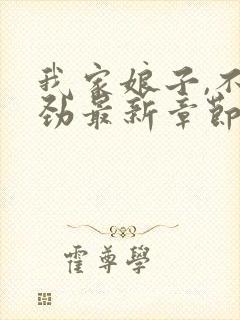 我家娘子,不
劲最新章節
霍尊學